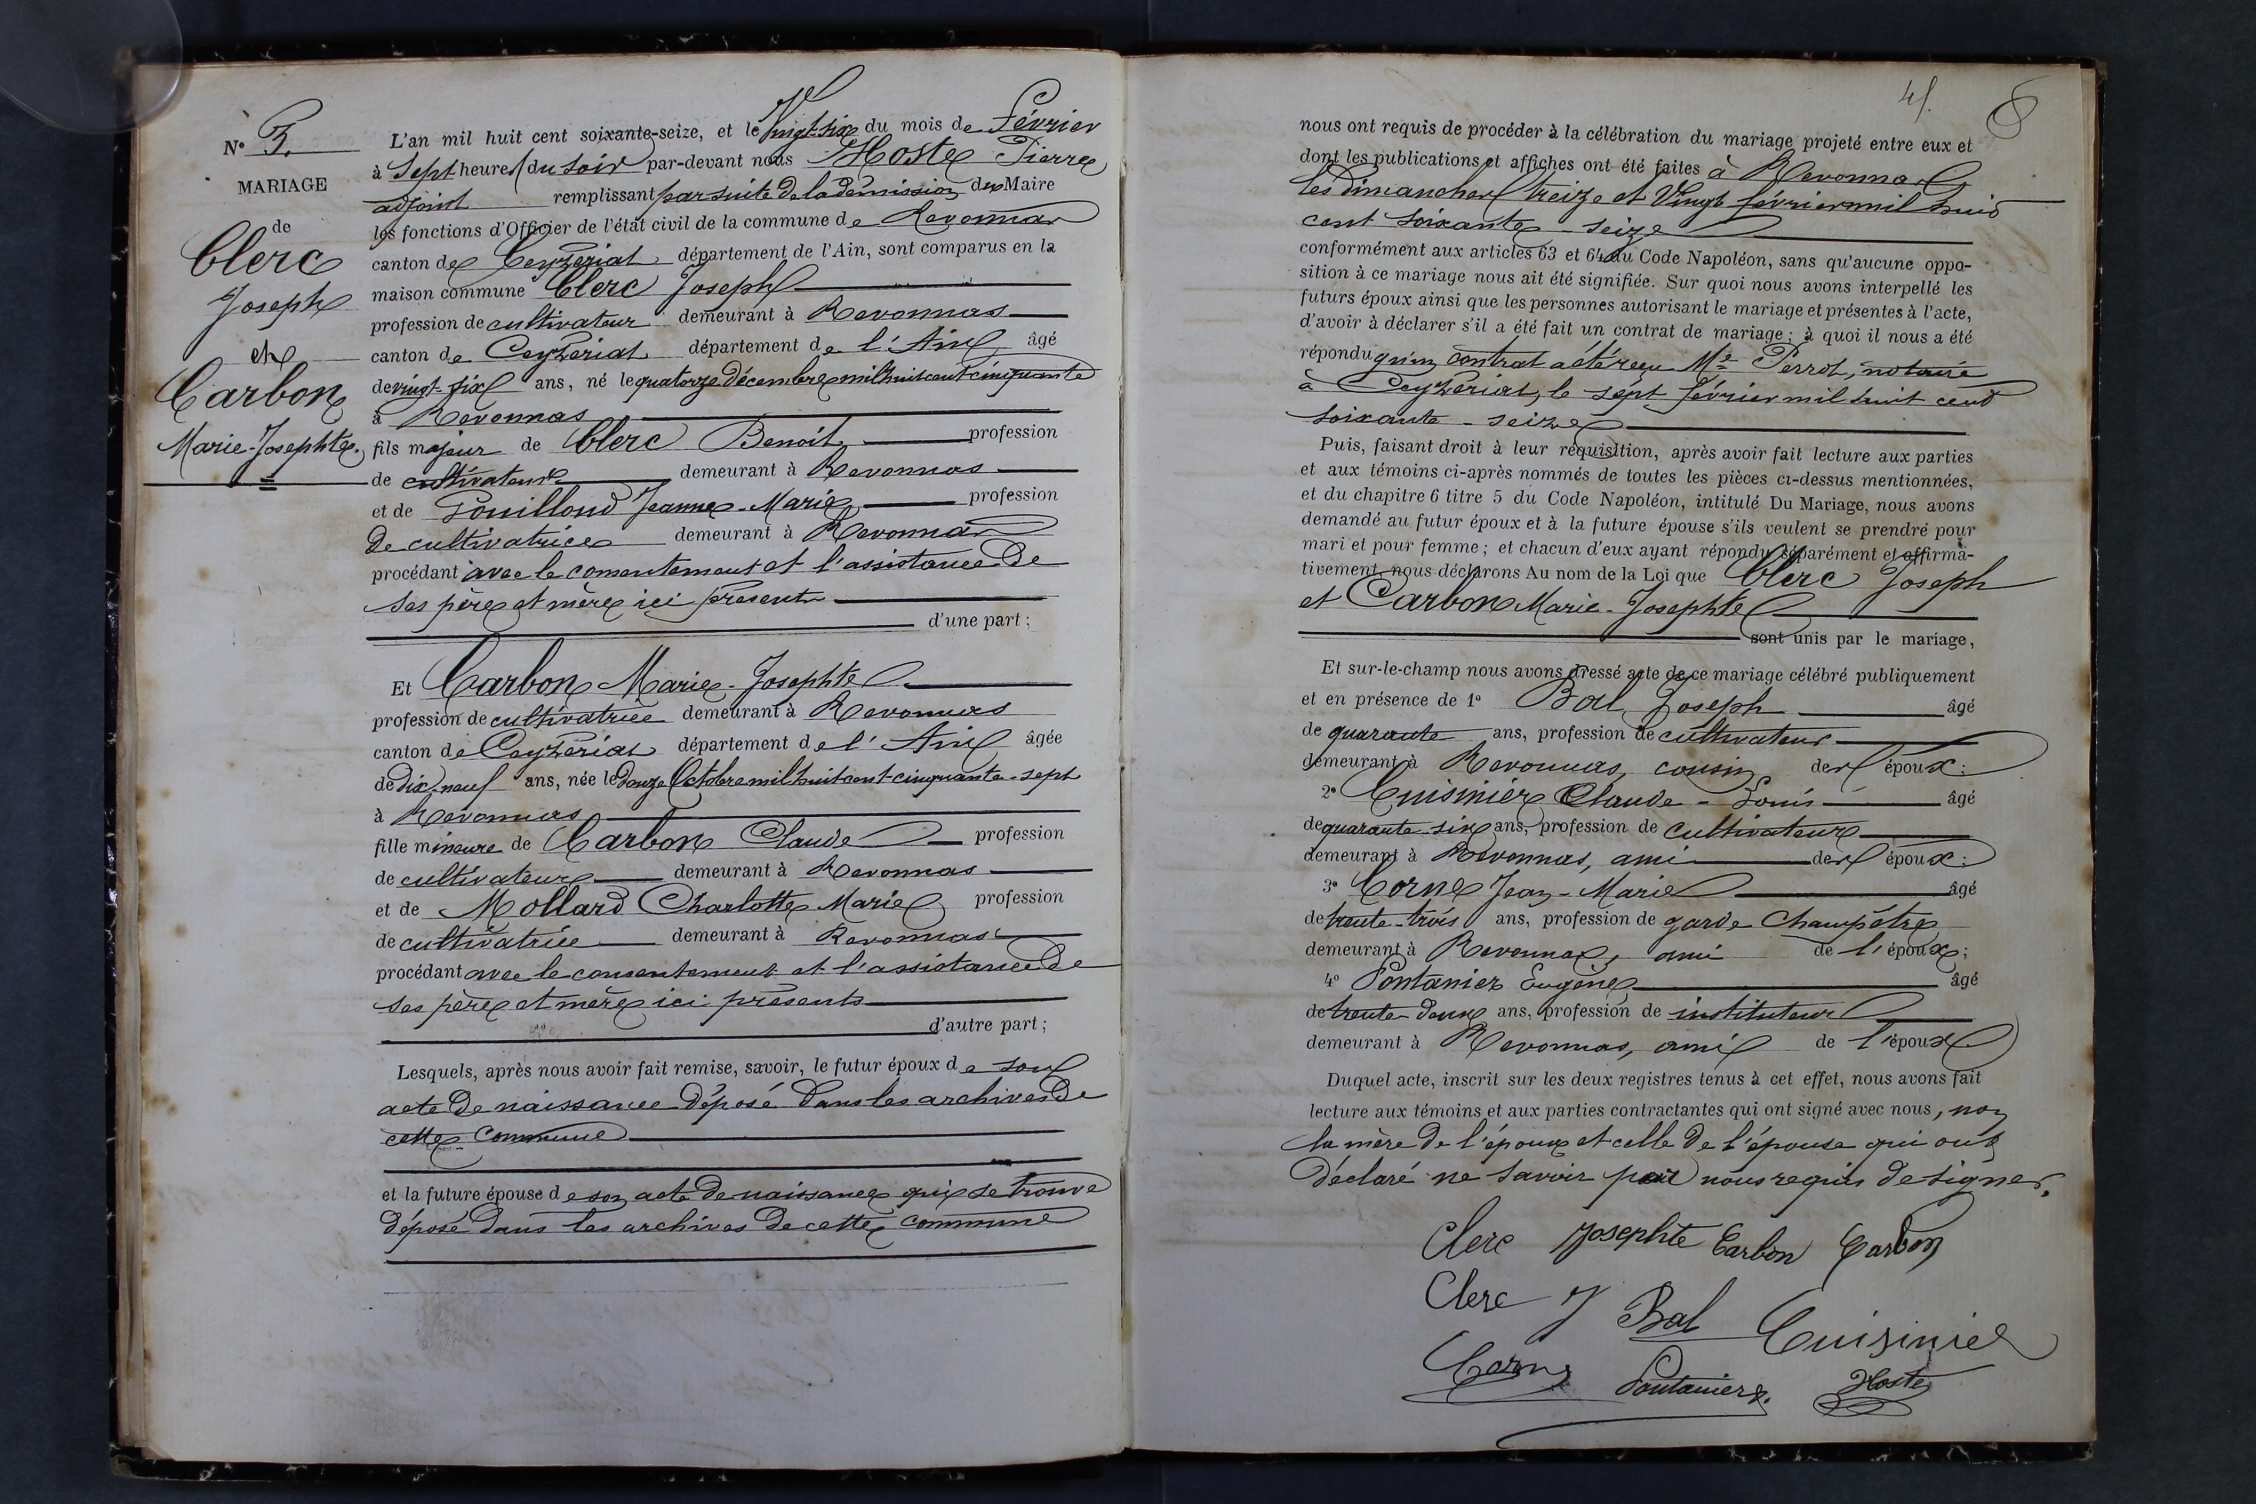 N° 3.
MARIAGE
de
Clerc
Joseph
et
Carbon
Marie-Josephte.
L'an mil huit cent soixante-seize, et le Vingt-six du mois de Février
à Sept heures du soir par-devant nous Hoste Pierre
adjoint remplissant par suite de la démission du Maire
les fonctions d'Officier de l'état civil de la commune de Revonnas
canton de Ceyzériat département de l'Ain, sont comparus en la
maison commune Clerc Joseph
profession de cultivateur demeurant à Revonnas
canton de Ceyzériat département de l'Ain âgé
de vingt-six ans, né le quatorze Décembre mil huit cent cinquante
à Revonnas
fils majeur de Clerc Benoit profession
de cultivateur demeurant à Revonnas
et de Pouilloud Jeanne-Marie profession
de cultivatrice demeurant à Revonnas
procédant avec le consentement et l'assistance de
ses père et mère ici présents
d'une part;
Et Carbon Marie-Josephte
profession de cultivatrice demeurant à Revonnas
canton de Ceyzériat département de l'Ain âgée
de dix-neuf ans, née le douze Octobre mil huit cent cinquante-sept
à Revonnas
fille mineure de Carbon Claude profession
de cultivateur demeurant à Revonnas
et de Mollard Charlotte Marie profession
de cultivatrice demeurant à Revonnas
procédant avec le consentement et l'assistance de
ses père et mère ici présents
d'autre part;
Lesquels, après nous avoir fait remise, savoir, le futur époux de son
acte de naissance déposé dans les archives de
cette commune
et la future épouse de son acte de naissance qui se trouve
déposé dans les archives de cette commune
4.
nous ont requis de procéder à la célébration du mariage projeté entre eux et
dont les publications et affiches ont été faites à Revonnas
les dimanches treize et Vingt février mil huit
cent soixante-seize
conformément aux articles 63 et 64 du Code Napoléon, sans qu'aucune oppo-
sition à ce mariage nous ait été signifiée. Sur quoi nous avons interpellé les
futurs époux ainsi que les personnes autorisant le mariage et présentes à l'acte,
d'avoir à déclarer s'il a été fait un contrat de mariage; à quoi il nous a été
répondu qu'un contrat a été reçu Me Perrot, notaire
à Ceyzériat, le sept février mil huit cent
soixante-seize
Puis, faisant droit à leur réquisition, après avoir fait lecture aux parties
et aux témoins ci-après nommés de toutes les pièces ci-dessus mentionnées,
et du chapitre 6 titre 5 du Code Napoléon, intitulé Du Mariage, nous avons
demandé au futur époux et à la future épouse s'ils veulent se prendre pour
mari et pour femme; et chacun d'eux ayant répondu séparément et affirma-
tivement, nous déclarons Au nom de la Loi que Clerc Joseph
et Carbon Marie-Josephte
sont unis par le mariage,
Et sur-le-champ nous avons dressé acte de ce mariage célébré publiquement
et en présence de 1° Bal Joseph âgé
de quarante ans, profession de cultivateur
demeurant à Revonnas, cousin des époux;
2° Cuisinier Claude-Louis âgé
de quarante-six ans, profession de cultivateur
demeurant à Revonnas, ami des époux;
3° Corne Jean-Marie âgé
de trente-trois ans, profession de garde Champêtre
demeurant à Revonnas, ami de l'époux;
4° Pontanier Eugène âgé
de trente-deux ans, profession de instituteur
demeurant à Revonnas, ami de l'époux
Duquel acte, inscrit sur les deux registres tenus à cet effet, nous avons fait
lecture aux témoins et aux parties contractantes qui ont signé avec nous, non
la mère de l'époux et celle de l'épouse qui ont
déclaré ne savoir par nous requis de signer.
Clerc Josephte Carbon Carbon
Clerc J Bal Cuisinier
Corne Pontanier Hoste